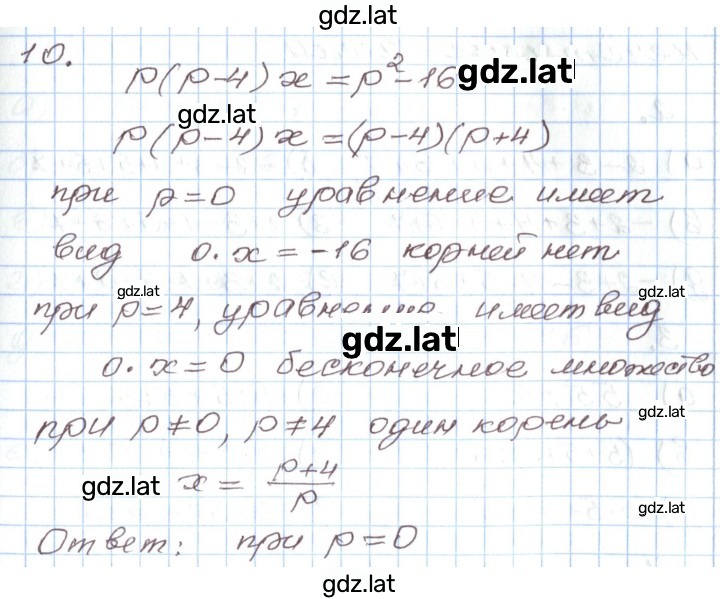 gdz.lat
10.
p(p-4)x=p²-16 gdz.lat
gdz.lat
p(p-4)x=(p-4)(p+4)
при p=0 уравнение имеет
вид 0·x=-16 корней нет
gdz.lat gdz.lat
при p=4, имеет вид
gdz.lat
0·x=0 бесконечное множество
при p≠0, p≠4 один корень gdz.lat
gdz.lat x = \frac{p+4}{p}
gdz.lat
Ответ: при p=0
gdz.lat